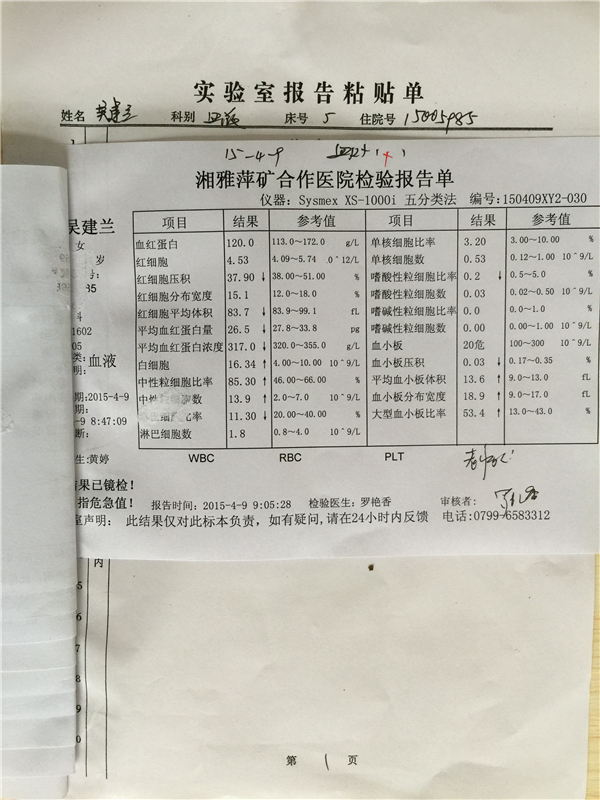 实验室报告粘贴单
姓名 吴建兰 科别 床号 5 住院号 15005985
15-4-9
湘雅萍矿合作医院检验报告单
仪器: Sysmex XS-1000i 五分类法 编号:150409XY2-030
吴建兰
女
岁
号:
85
科
1602
05
类:血液
明:
期:2015-4-9
期:
-9 8:47:09
断:
生:黄婷
项目 结果 参考值 项目 结果 参考值
血红蛋白 120.0 113.0~172.0 g/L 单核细胞比率 3.20 3.00~10.00 %
红细胞 4.53 4.09~5.74 .0^12/L 单核细胞数 0.53 0.12~1.00 10^9/L
红细胞压积 37.90 ↓ 38.00~51.00 % 嗜酸性粒细胞比率 0.2 ↓ 0.5~5.0 %
红细胞分布宽度 15.1 12.0~18.0 % 嗜酸性粒细胞数 0.03 0.02~0.50 10^9/L
红细胞平均体积 83.7 ↓ 83.9~99.1 fL 嗜碱性粒细胞比率 0.0 0.0~1.0 %
平均血红蛋白量 26.5 ↓ 27.8~33.8 pg 嗜碱性粒细胞数 0.00 0.00~1.00 10^9/L
平均血红蛋白浓度 317.0 ↓ 320.0~355.0 g/L 血小板 20危 100~300 10^9/L
白细胞 16.34 ↑ 4.00~10.00 10^9/L 血小板压积 0.03 ↓ 0.17~0.35 %
中性粒细胞比率 85.30 ↑ 46.00~66.00 % 平均血小板体积 13.6 ↑ 9.0~13.0 fL
中性 数 13.9 ↑ 2.0~7.0 10^9/L 血小板分布宽度 18.9 ↑ 9.0~17.0 fL
比率 11.30 ↓ 20.00~40.00 % 大型血小板比率 53.4 ↑ 13.0~43.0 %
淋巴细胞数 1.8 0.8~4.0 10^9/L
WBC RBC PLT
结果已镜检!
指危急值! 报告时间:2015-4-9 9:05:28 检验医生:罗艳香 审核者:
室声明: 此结果仅对此标本负责,如有疑问,请在24小时内反馈 电话:0799-6583312
内
5
6
7
8
9
0
第 1 页